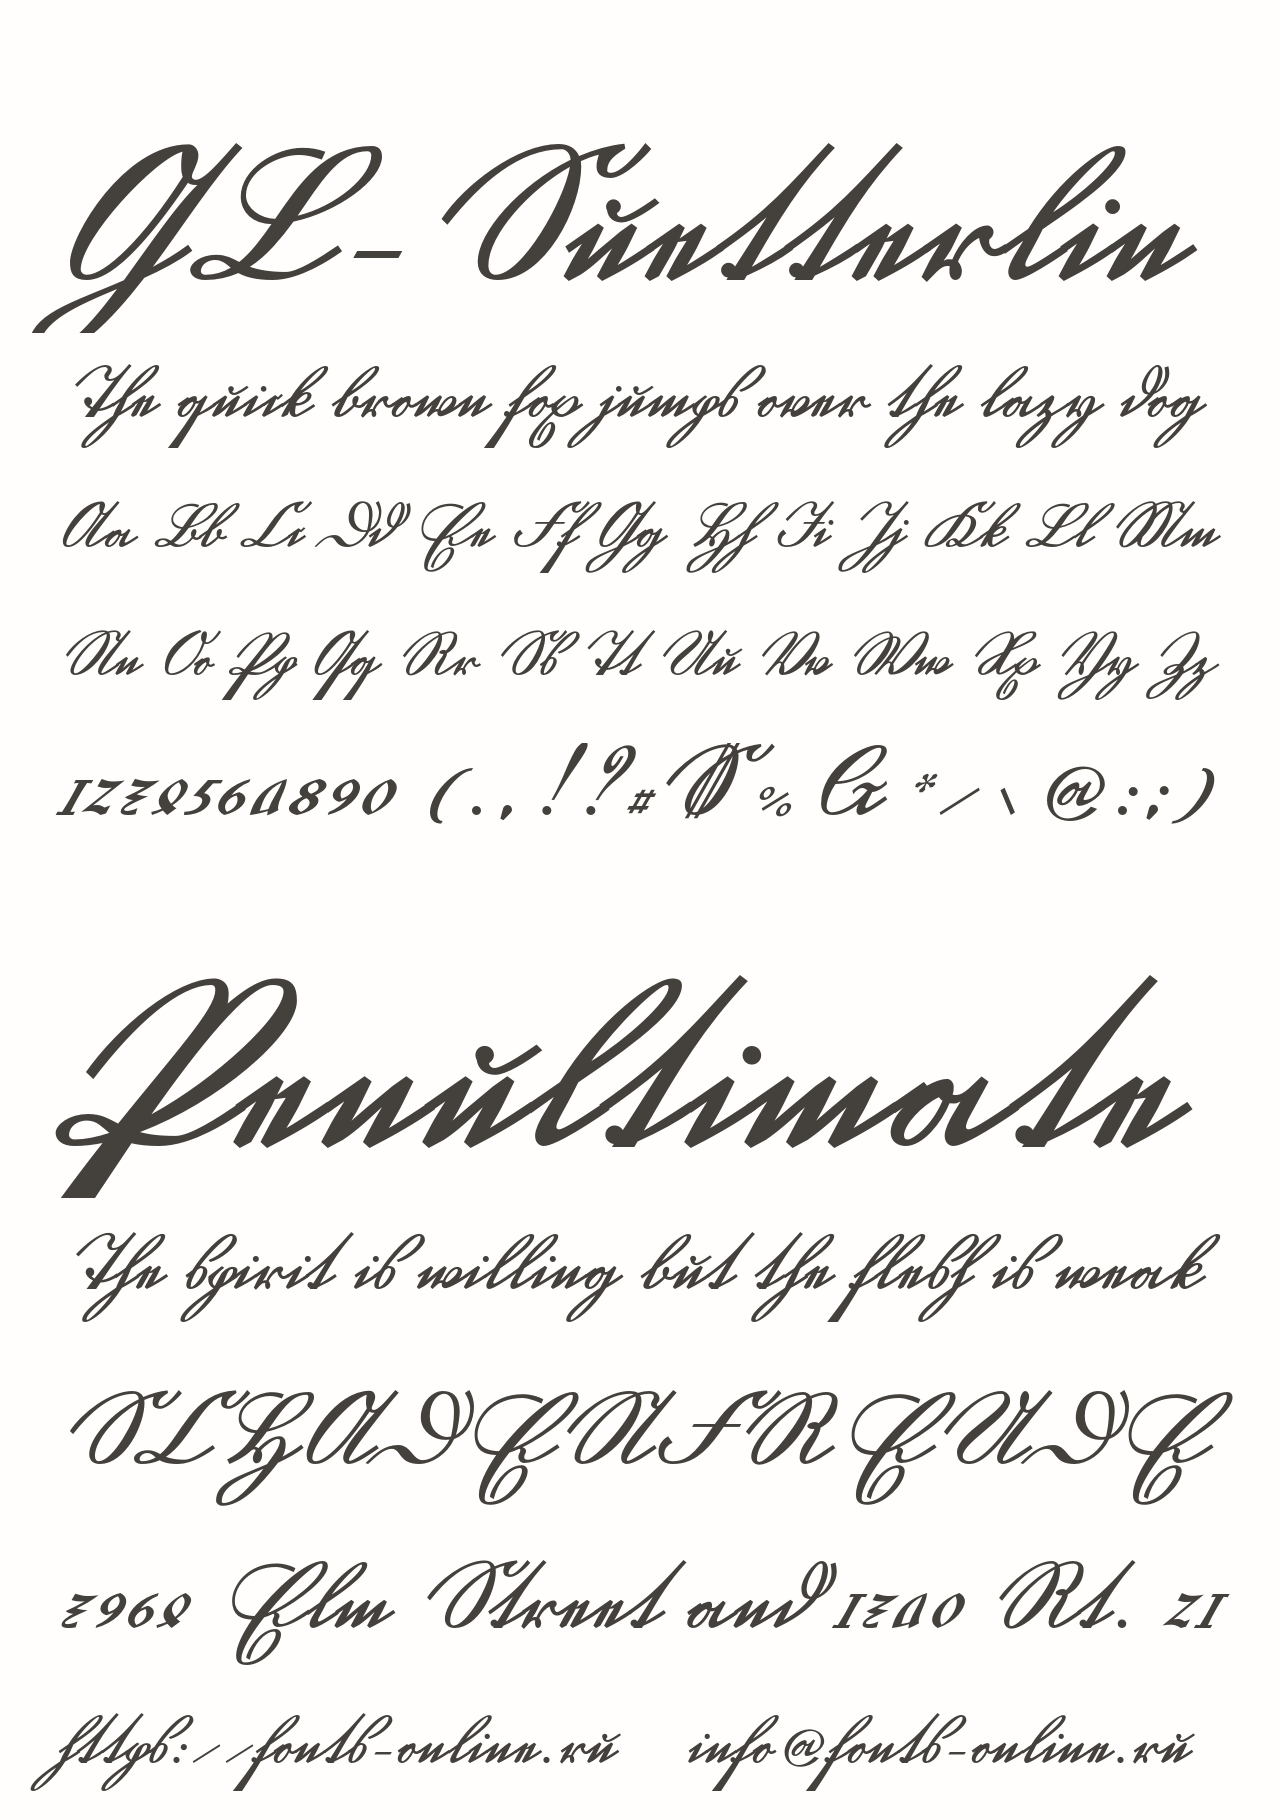 GL-Suetterlin
The quick brown fox jumps over the lazy dog
Aa Bb Cc Dd Ee Ff Gg Hh Ii Jj Kk Ll Mm
Nn Oo Pp Qq Rr Ss Tt Uu Vv Ww Xx Yy Zz
1234567890 (.,!?#$%&*/\@:;)
Penultimate
The spirit is willing but the flesh is weak
SCHADENFREUDE
3964 Elm Street and 1370 Rt. 21
https://fonts-online.ru info@fonts-online.ru